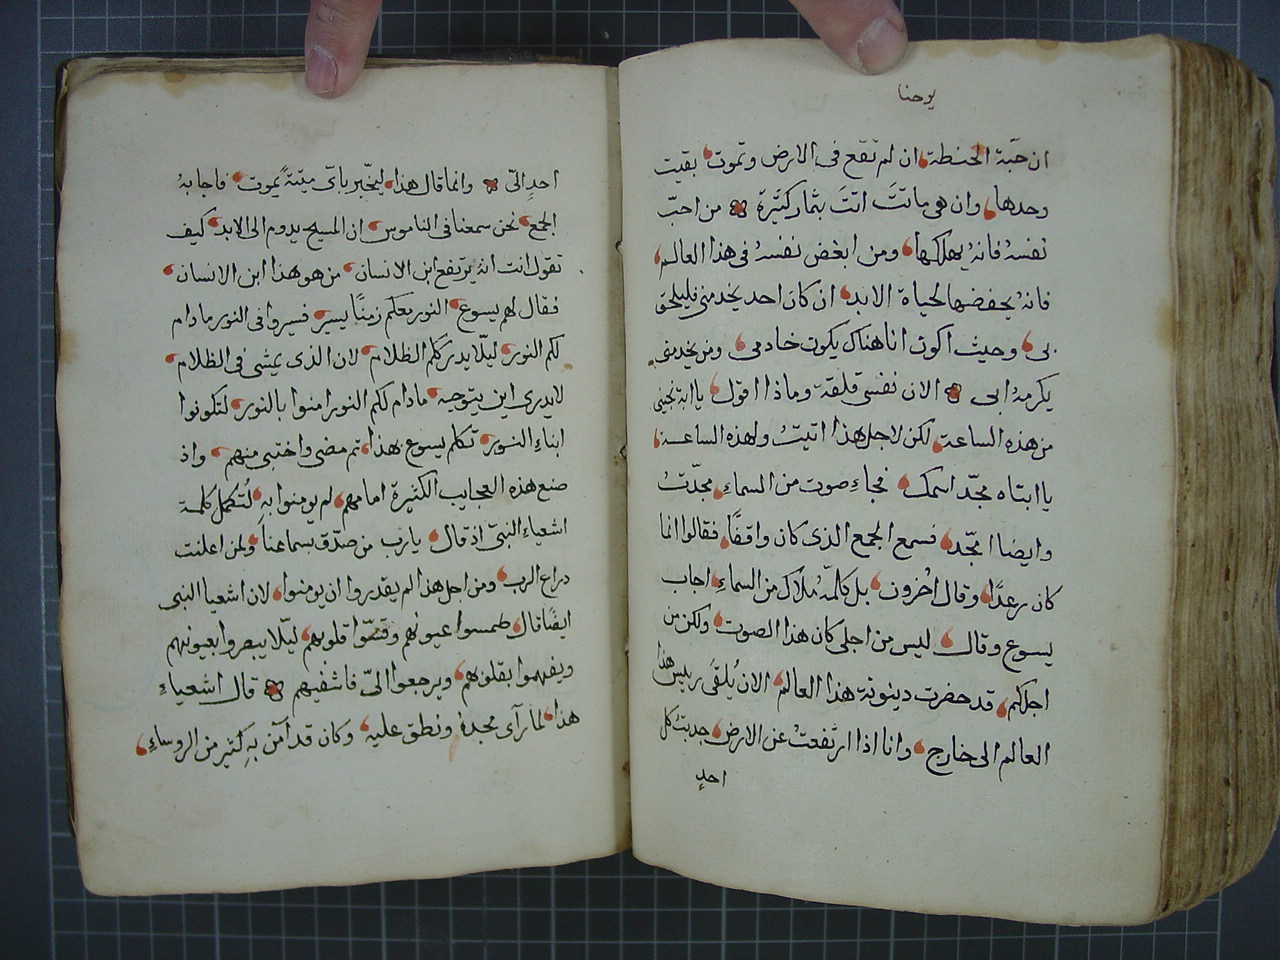 يوحنا
ان حبة الحنطة ان لم تقع فى الارض وتموت بقيت
وحدها وان هى ماتت اتت بثمار كثيرة من احب
نفسه فانه يهلكها ومن ابغض نفسه فى هذا العالم
فانه يحفضها لحياة الابد ان كان احد يخدمنى فليلحق
بى وحيث اكون انا هناك يكون خادمى ومن يخدمنى
يكرمه ابى الان نفسى قلقة وماذا اقول يا ابة نجينى
من هذه الساعة لكن لاجل هذا اتيت ولهذه الساعة
يا ابتاه مجد اسمك فجاء صوت من السماء مجدت
وايضا امجد فسمع الجمع الذى كان واقفا فقالوا انما
كان رعدا وقال اخرون بل كلمه ملاك من السماء اجاب
يسوع وقال ليس من اجلى كان هذا الصوت ولكن من
اجلكم قد حضرت دينونة هذا العالم الان يلقى رييس هذا
العالم الى خارج وانا اذا ارتفعت عن الارض جدبت كل
احد
احد الى وانما قال هذا ليخبر باى ميتة يموت فاجابه
الجمع نحن سمعنا فى الناموس ان المسيح يدوم الى الابد كيف
تقول انت انه يرتفع ابن الانسان من هو هذا ابن الانسان
فقال لهم يسوع النور معكم زمنا يسير فسيروا فى النور ما دام
لكم النور ليلا يدرككم الظلام لان الذى يمشى فى الظلام
لا يدرى اين يتوجه ما دام لكم النور امنوا بالنور لتكونوا
ابناء النور تكلم يسوع بهذا ثم مضى واختبى منهم واذ
صنع هذه العجايب الكثيرة امامهم لم يومنوا به لتكمل كلمة
اشعياء النبى اذ قال يا رب من صدق بسماعنا ولمن اعلنت
دراع الرب ومن اجل هذا لم يقدروا ان يومنوا لان اشعيا النبى
ايضا قال طمسوا عيونهم وقسوا قلوبهم ليلا يبصروا بعيونهم
ويفهموا بقلوبهم ويرجعوا الى فاشفيهم قال اشعياء
هذا لما رآى مجده ونطق عليه وكان قد آمن به كثير من الروساء